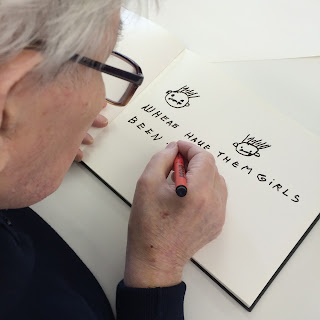 WHERE HAVE THEM GIRLS
BEEN